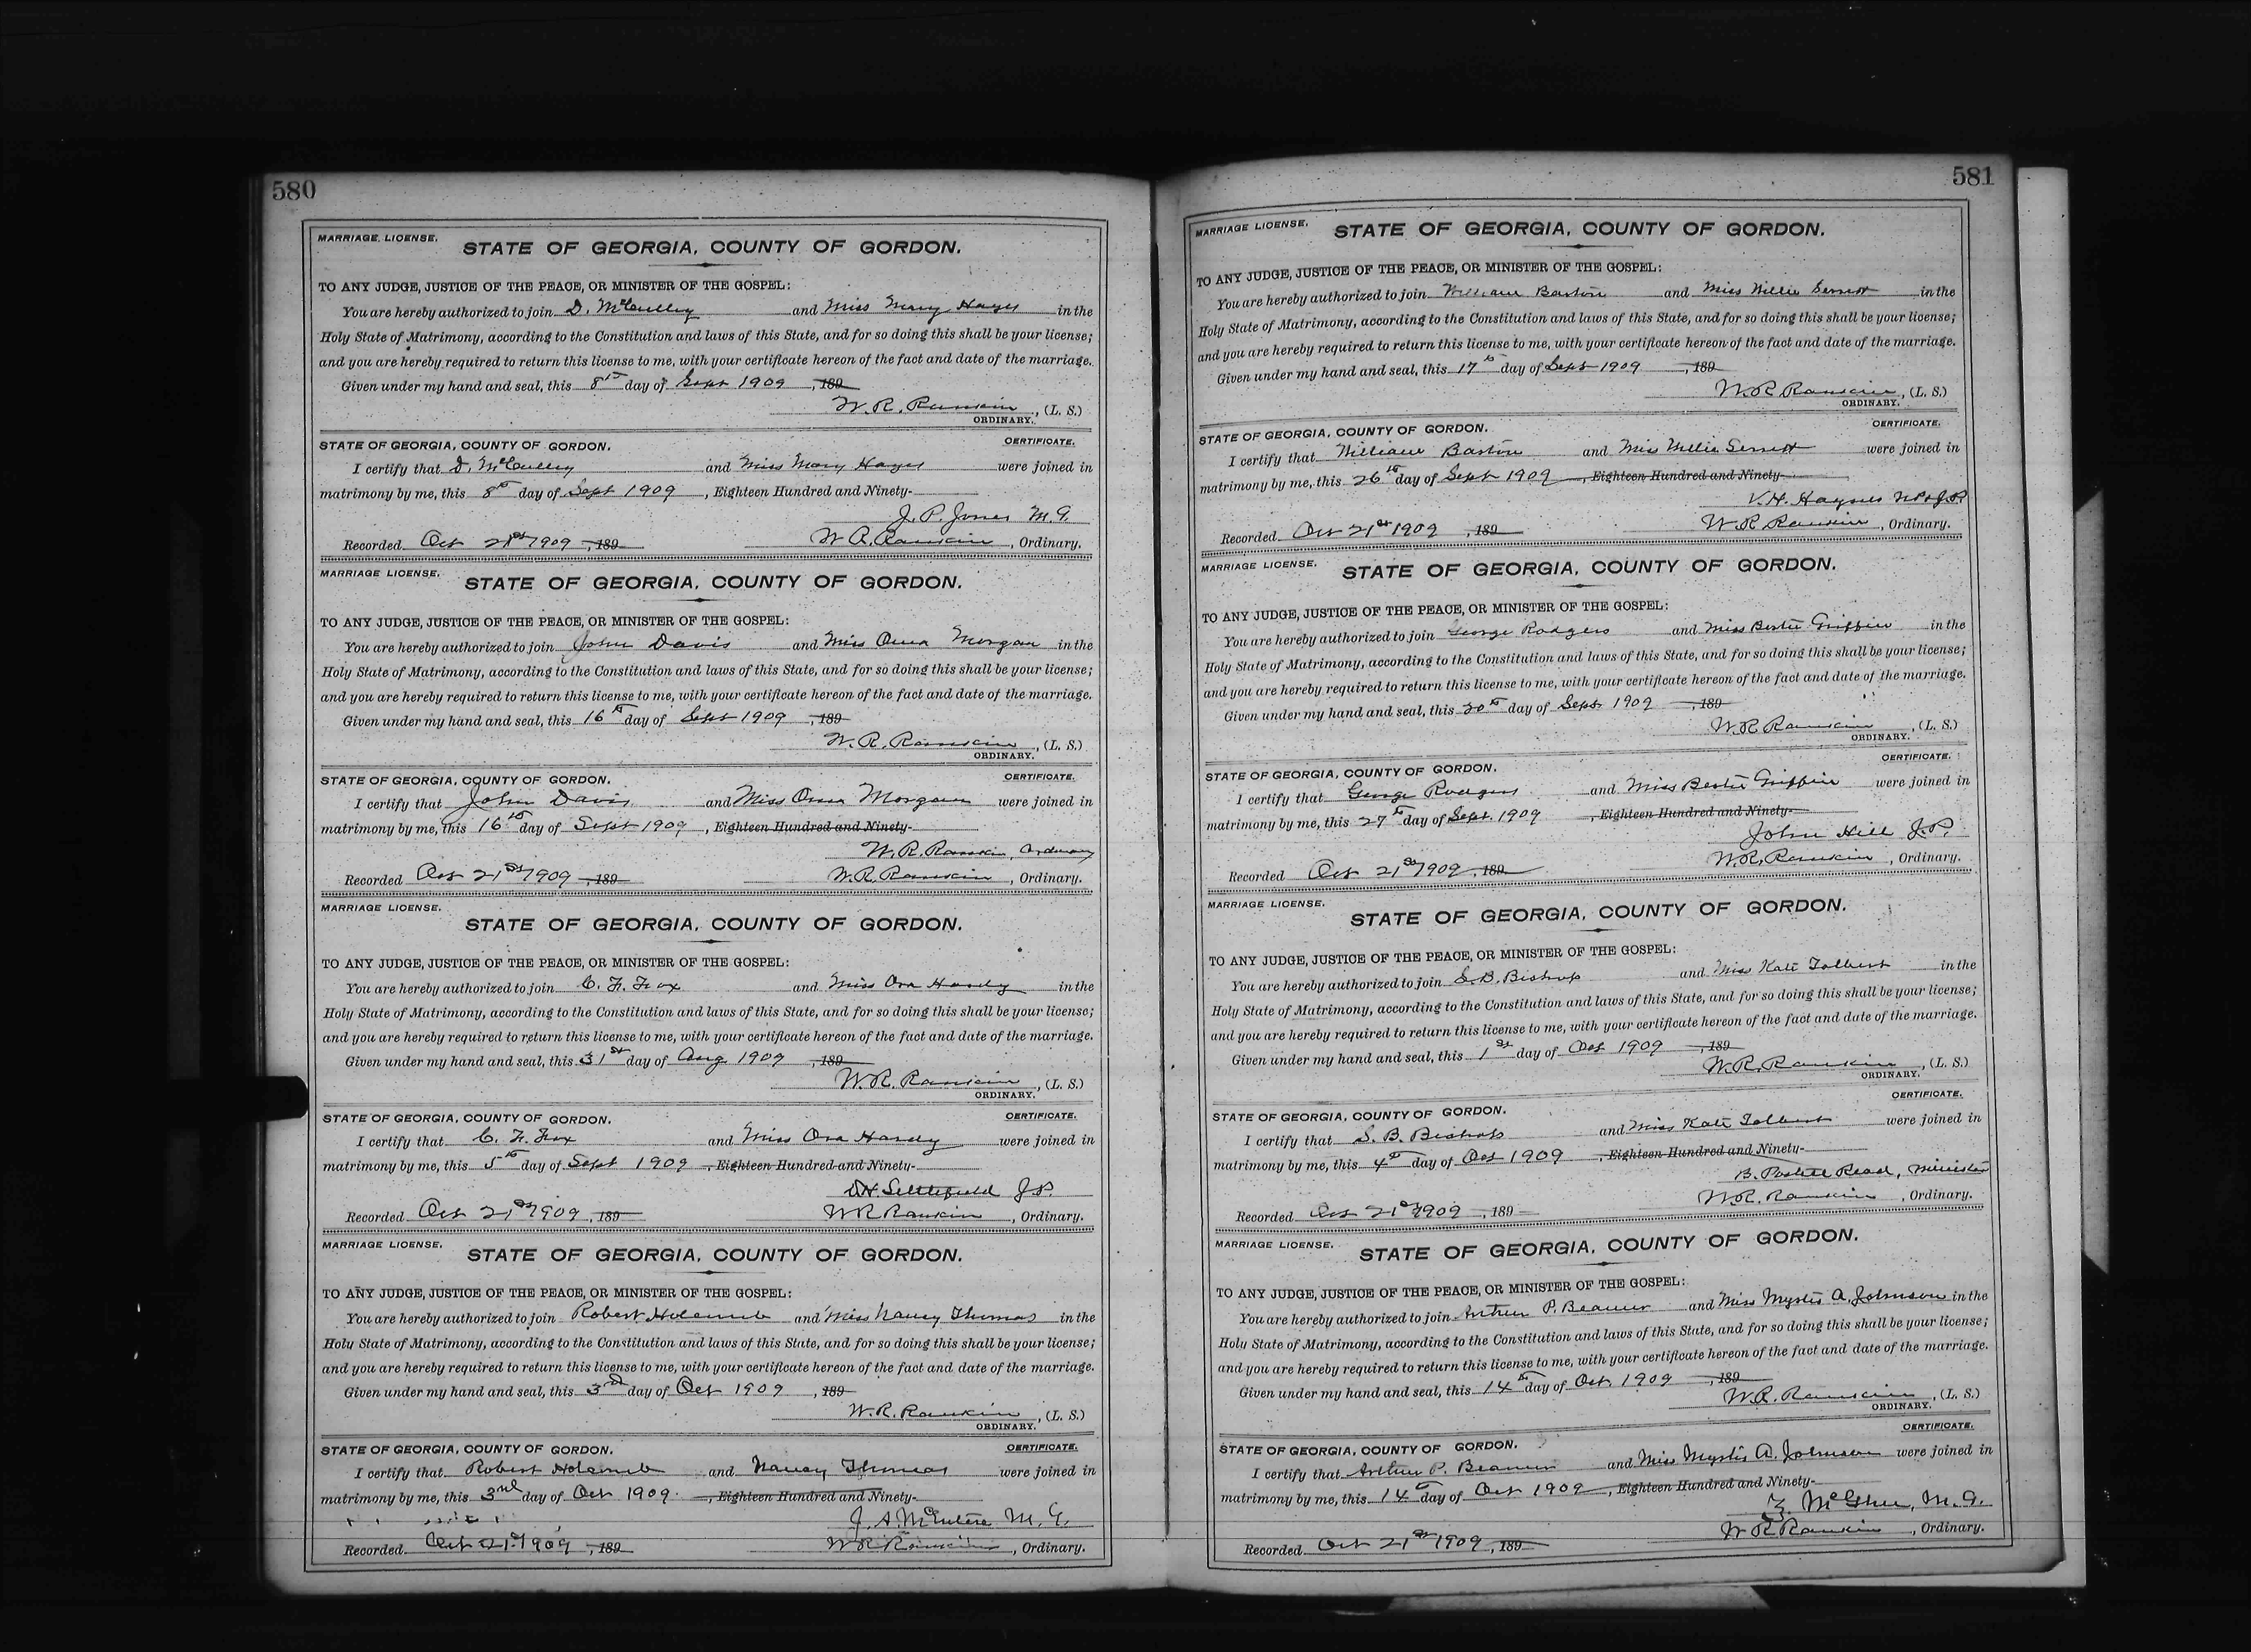 580
MARRIAGE LICENSE.
STATE OF GEORGIA, COUNTY OF GORDON.
TO ANY JUDGE, JUSTICE OF THE PEACE, OR MINISTER OF THE GOSPEL:
You are hereby authorized to join D. McCulley and Miss Mary Hayes in the
Holy State of Matrimony, according to the Constitution and laws of this State, and for so doing this shall be your license;
and you are hereby required to return this license to me, with your certificate hereon of the fact and date of the marriage.
Given under my hand and seal, this 8th day of Sept 1909, 189
W. R. Rankin, (L. S.)
ORDINARY.
STATE OF GEORGIA, COUNTY OF GORDON. CERTIFICATE.
I certify that D. McCulley and Miss Mary Hayes were joined in
matrimony by me, this 8th day of Sept 1909, Eighteen Hundred and Ninety-
J. P. Jones M. G.
Recorded Oct 21st 1909, 189 W R. Rankin, Ordinary.
MARRIAGE LICENSE.
STATE OF GEORGIA, COUNTY OF GORDON.
TO ANY JUDGE, JUSTICE OF THE PEACE, OR MINISTER OF THE GOSPEL:
You are hereby authorized to join John Davis and Miss Oma Morgan in the
Holy State of Matrimony, according to the Constitution and laws of this State, and for so doing this shall be your license;
and you are hereby required to return this license to me, with your certificate hereon of the fact and date of the marriage.
Given under my hand and seal, this 16th day of Sept 1909, 189
W. R. Rankin, (L. S.)
ORDINARY.
STATE OF GEORGIA, COUNTY OF GORDON. CERTIFICATE.
I certify that John Davis and Miss Oma Morgan were joined in
matrimony by me, this 16th day of Sept 1909, Eighteen Hundred and Ninety-
W. R. Rankin, Ordinary
Recorded Oct 21st 1909, 189 W. R. Rankin, Ordinary.
MARRIAGE LICENSE.
STATE OF GEORGIA, COUNTY OF GORDON.
TO ANY JUDGE, JUSTICE OF THE PEACE, OR MINISTER OF THE GOSPEL:
You are hereby authorized to join C. F. Fox and Miss Ora Hardy in the
Holy State of Matrimony, according to the Constitution and laws of this State, and for so doing this shall be your license;
and you are hereby required to return this license to me, with your certificate hereon of the fact and date of the marriage.
Given under my hand and seal, this 31st day of Aug 1909, 189
W. R. Rankin, (L. S.)
ORDINARY.
STATE OF GEORGIA, COUNTY OF GORDON. CERTIFICATE.
I certify that C. F. Fox and Miss Ora Hardy were joined in
matrimony by me, this 5th day of Sept 1909, Eighteen Hundred and Ninety-
D. H. Settlefield J. P.
Recorded Oct 21st 1909, 189 W R Rankin, Ordinary.
MARRIAGE LICENSE.
STATE OF GEORGIA, COUNTY OF GORDON.
TO ANY JUDGE, JUSTICE OF THE PEACE, OR MINISTER OF THE GOSPEL:
You are hereby authorized to join Robert Holcomb and Miss Nancy Thomas in the
Holy State of Matrimony, according to the Constitution and laws of this State, and for so doing this shall be your license;
and you are hereby required to return this license to me, with your certificate hereon of the fact and date of the marriage.
Given under my hand and seal, this 3rd day of Oct 1909, 189
W. R. Rankin, (L. S.)
ORDINARY.
STATE OF GEORGIA, COUNTY OF GORDON. CERTIFICATE.
I certify that Robert Holcomb and Nancy Thomas were joined in
matrimony by me, this 3rd day of Oct 1909, Eighteen Hundred and Ninety-
J. A. McEntire M. G.
Recorded Oct 21st 1909, 189 W R Rankin, Ordinary.
581
MARRIAGE LICENSE.
STATE OF GEORGIA, COUNTY OF GORDON.
TO ANY JUDGE, JUSTICE OF THE PEACE, OR MINISTER OF THE GOSPEL:
You are hereby authorized to join William Barton and Miss Willie in the
Holy State of Matrimony, according to the Constitution and laws of this State, and for so doing this shall be your license;
and you are hereby required to return this license to me, with your certificate hereon of the fact and date of the marriage.
Given under my hand and seal, this 17th day of Sept 1909, 189
W. R Rankin, (L. S.)
ORDINARY.
STATE OF GEORGIA, COUNTY OF GORDON. CERTIFICATE.
I certify that William Barton and Miss Willie were joined in
matrimony by me, this 26th day of Sept 1909, Eighteen Hundred and Ninety-
V. H. Haynes N P & J. P.
Recorded Oct 21st 1909, 189 W. R. Rankin, Ordinary.
MARRIAGE LICENSE.
STATE OF GEORGIA, COUNTY OF GORDON.
TO ANY JUDGE, JUSTICE OF THE PEACE, OR MINISTER OF THE GOSPEL:
You are hereby authorized to join George Rodgers and Miss Bertie Griffin in the
Holy State of Matrimony, according to the Constitution and laws of this State, and for so doing this shall be your license;
and you are hereby required to return this license to me, with your certificate hereon of the fact and date of the marriage.
Given under my hand and seal, this 20th day of Sept 1909, 189
W. R Rankin, (L. S.)
ORDINARY.
STATE OF GEORGIA, COUNTY OF GORDON. CERTIFICATE.
I certify that George Rodgers and Miss Bertie Griffin were joined in
matrimony by me, this 27th day of Sept. 1909, Eighteen Hundred and Ninety-
John Hill J. P.
Recorded Oct 21st 1909, 189 W. R. Rankin, Ordinary.
MARRIAGE LICENSE.
STATE OF GEORGIA, COUNTY OF GORDON.
TO ANY JUDGE, JUSTICE OF THE PEACE, OR MINISTER OF THE GOSPEL:
You are hereby authorized to join S. B. Bishop and Miss Kate Tolbert in the
Holy State of Matrimony, according to the Constitution and laws of this State, and for so doing this shall be your license;
and you are hereby required to return this license to me, with your certificate hereon of the fact and date of the marriage.
Given under my hand and seal, this 1st day of Oct 1909, 189
W. R. Rankin, (L. S.)
ORDINARY.
STATE OF GEORGIA, COUNTY OF GORDON. CERTIFICATE.
I certify that S. B. Bishop and Miss Kate Tolbert were joined in
matrimony by me, this 4th day of Oct 1909, Eighteen Hundred and Ninety-
B. Read, Minister
Recorded Oct 21st 1909, 189 W. R. Rankin, Ordinary.
MARRIAGE LICENSE.
STATE OF GEORGIA, COUNTY OF GORDON.
TO ANY JUDGE, JUSTICE OF THE PEACE, OR MINISTER OF THE GOSPEL:
You are hereby authorized to join Arthur P. Beamer and Miss Myrtis A. Johnson in the
Holy State of Matrimony, according to the Constitution and laws of this State, and for so doing this shall be your license;
and you are hereby required to return this license to me, with your certificate hereon of the fact and date of the marriage.
Given under my hand and seal, this 14th day of Oct. 1909, 189
W. R. Rankin, (L. S.)
ORDINARY.
STATE OF GEORGIA, COUNTY OF GORDON. CERTIFICATE.
I certify that Arthur P. Beamer and Miss Myrtis A. Johnson were joined in
matrimony by me, this 14th day of Oct 1909, Eighteen Hundred and Ninety-
Z. McGhee, M. G.
Recorded Oct 21st 1909, 189 W R Rankin, Ordinary.